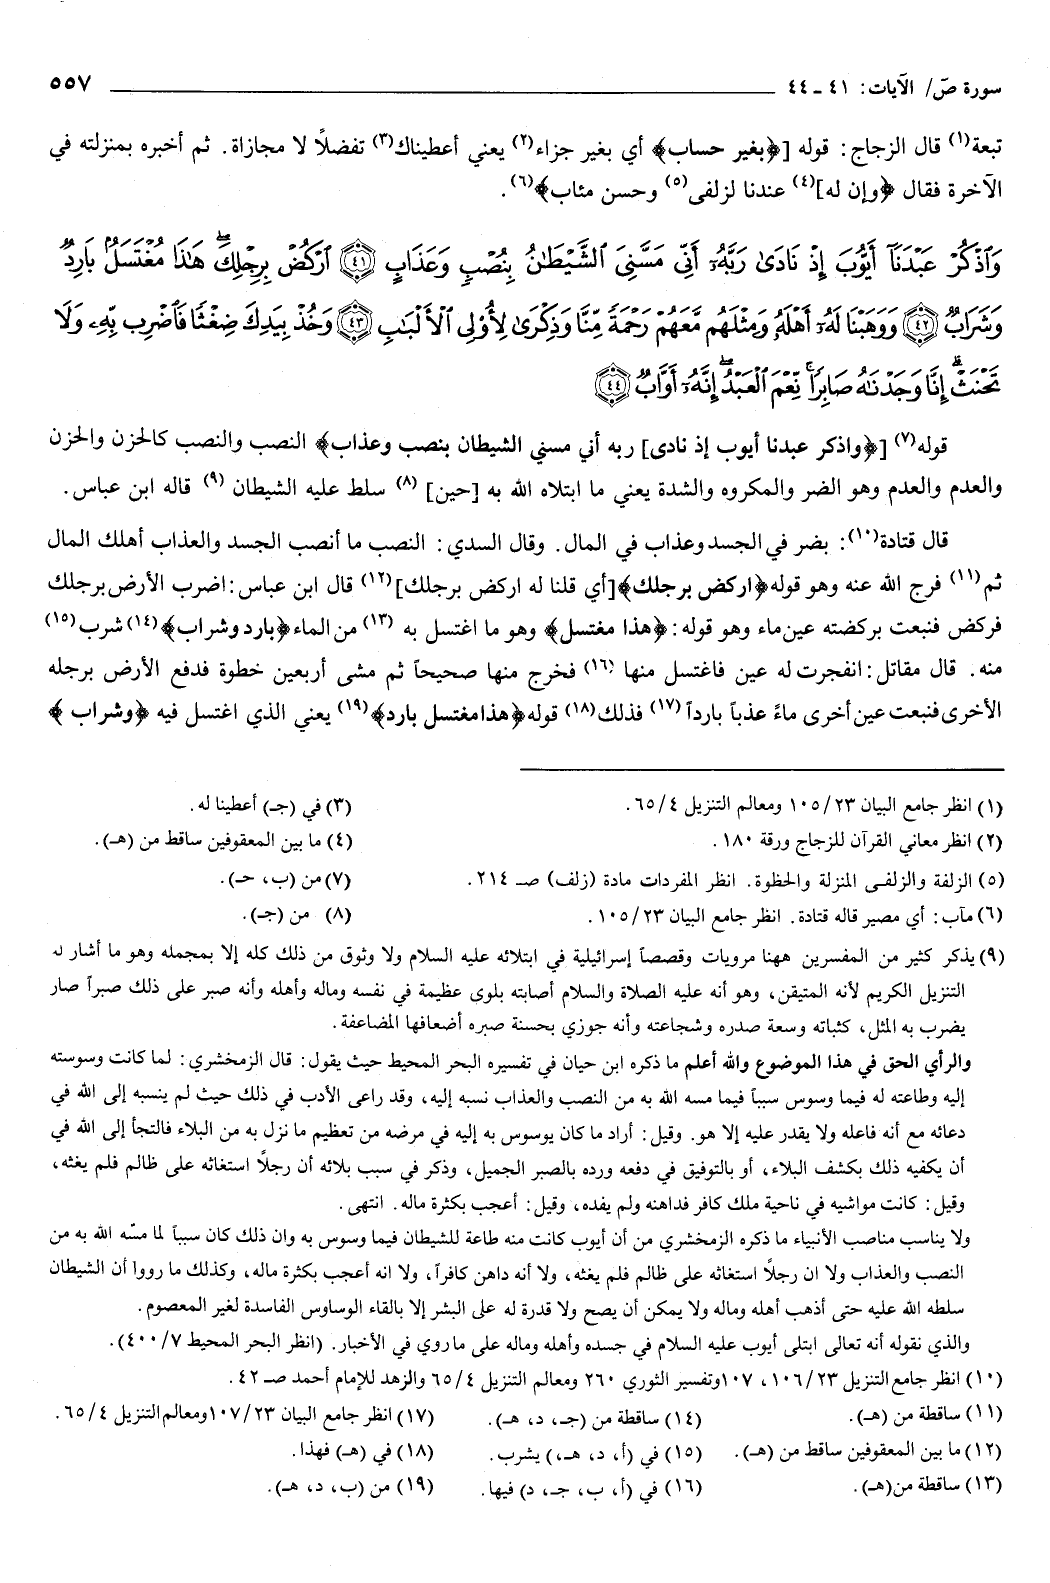 سورة صۤ/ الآيات: ٤١ ـ ٤٤
٥٥٧
تبعة(١) قال الزجاج: قوله [﴿بغير حساب﴾ أي بغير جزاء(٢) يعني أعطيناك(٣) تفضلاً لا مجازاة. ثم أخبره بمنزلته في
الآخرة فقال ﴿وإن له](٤) عندنا لزلفى(٥) وحسن مئاب﴾(٦).
وَٱذْكُرْ عَبْدَنَآ أَيُّوبَ إِذْ نَادَىٰ رَبَّهُۥٓ أَنِّى مَسَّنِىَ ٱلشَّيْطَـٰنُ بِنُصْبٍ وَعَذَابٍ ﴿٤١﴾ ٱرْكُضْ بِرِجْلِكَ ۖ هَـٰذَا مُغْتَسَلٌۢ بَارِدٌ
وَشَرَابٌ ﴿٤٢﴾ وَوَهَبْنَا لَهُۥٓ أَهْلَهُۥ وَمِثْلَهُم مَّعَهُمْ رَحْمَةً مِّنَّا وَذِكْرَىٰ لِأُو۟لِى ٱلْأَلْبَـٰبِ ﴿٤٣﴾ وَخُذْ بِيَدِكَ ضِغْثًا فَٱضْرِب بِّهِۦ وَلَا
تَحْنَثْ ۗ إِنَّا وَجَدْنَـٰهُ صَابِرًا ۚ نِّعْمَ ٱلْعَبْدُ ۖ إِنَّهُۥٓ أَوَّابٌ ﴿٤٤﴾
قوله(٧) [﴿واذكر عبدنا أيوب إذ نادى] ربه أني مسني الشيطان بنصب وعذاب﴾ النصب والنصب كالحزن والحزن
والعدم والعدم وهو الضر والمكروه والشدة يعني ما ابتلاه الله به [حين] (٨) سلط عليه الشيطان (٩) قاله ابن عباس.
قال قتادة(١٠): بضر في الجسد وعذاب في المال. وقال السدي: النصب ما أنصب الجسد والعذاب أهلك المال
ثم(١١) فرج الله عنه وهو قوله ﴿اركض برجلك﴾[أي قلنا له اركض برجلك](١٢) قال ابن عباس: اضرب الأرض برجلك
فركض فنبعت بركضته عين ماء وهو قوله: ﴿هذا مغتسل﴾ وهو ما اغتسل به (١٣) من الماء ﴿بارد وشراب﴾(١٤) شرب(١٥)
منه. قال مقاتل: انفجرت له عين فاغتسل منها (١٦) فخرج منها صحيحاً ثم مشى أربعين خطوة فدفع الأرض برجله
الأخرى فنبعت عين أخرى ماءً عذباً بارداً (١٧) فذلك(١٨) قوله ﴿هذا مغتسل بارد﴾(١٩) يعني الذي اغتسل فيه ﴿وشراب ﴾
(١) انظر جامع البيان ١٠٥/٢٣ ومعالم التنزيل ٦٥/٤.
(٣) في (جـ) أعطينا له.
(٢) انظر معاني القرآن للزجاج ورقة ١٨٠.
(٤) ما بين المعقوفين ساقط من (هـ).
(٥) الزلفة والزلفـى المنزلة والحظوة. انظر المفردات مادة (زلف) صـ ٢١٤.
(٧) من (ب، حـ).
(٦) مآب: أي مصير قاله قتادة. انظر جامع البيان ١٠٥/٢٣.
(٨) من (جـ).
(٩) يذكر كثير من المفسرين ههنا مرويات وقصصاً إسرائيلية في ابتلائه عليه السلام ولا وثوق من ذلك كله إلا بمجمله وهو ما أشار له
التنزيل الكريم لأنه المتيقن، وهو أنه عليه الصلاة والسلام أصابته بلوى عظيمة في نفسه وماله وأهله وأنه صبر على ذلك صبراً صار
يضرب به المثل، كثباته وسعة صدره وشجاعته وأنه جوزي بحسنة صبره أضعافها المضاعفة.
والرأي الحق في هذا الموضوع والله أعلم ما ذكره ابن حيان في تفسيره البحر المحيط حيث يقول: قال الزمخشري: لما كانت وسوسته
إليه وطاعته له فيما وسوس سبباً فيما مسه الله به من النصب والعذاب نسبه إليه، وقد راعى الأدب في ذلك حيث لم ينسبه إلى الله في
دعائه مع أنه فاعله ولا يقدر عليه إلا هو. وقيل: أراد ما كان يوسوس به إليه في مرضه من تعظيم ما نزل به من البلاء فالتجأ إلى الله في
أن يكفيه ذلك بكشف البلاء، أو بالتوفيق في دفعه ورده بالصبر الجميل، وذكر في سبب بلائه أن رجلًا استغاثه على ظالم فلم يغثه،
وقيل: كانت مواشيه في ناحية ملك كافر فداهنه ولم يفده، وقيل: أعجب بكثرة ماله. انتهى.
ولا يناسب مناصب الأنبياء ما ذكره الزمخشري من أن أيوب كانت منه طاعة للشيطان فيما وسوس به وان ذلك كان سبباً لما مسّه الله به من
النصب والعذاب ولا ان رجلًا استغاثه على ظالم فلم يغثه، ولا أنه داهن كافرآ، ولا انه أعجب بكثرة ماله، وكذلك ما رووا أن الشيطان
سلطه الله عليه حتى أذهب أهله وماله ولا يمكن أن يصح ولا قدرة له على البشر إلا بالقاء الوساوس الفاسدة لغير المعصوم.
والذي نقوله أنه تعالى ابتلى أيوب عليه السلام في جسده وأهله وماله على ما روي في الأخبار. (انظر البحر المحيط ٤٠٠/٧).
(١٠) انظر جامع التنزيل ١٠٦/٢٣، ١٠٧ وتفسير الثوري ٢٦٠ ومعالم التنزيل ٦٥/٤ والزهد للإمام أحمد صـ ٤٢.
(١١) ساقطة من (هـ).
(١٤) ساقطة من (جـ، د، هـ).
(١٧) انظر جامع البيان ١٠٧/٢٣ ومعالم التنزيل ٦٥/٤.
(١٢) ما بين المعقوفين ساقط من (هـ).
(١٥) في (أ، د، هـ،) يشرب.
(١٨) في (هـ) فهذا.
(١٣) ساقطة من(هـ).
(١٦) في (أ، ب، جـ، د) فيها.
(١٩) من (ب، د، هـ).